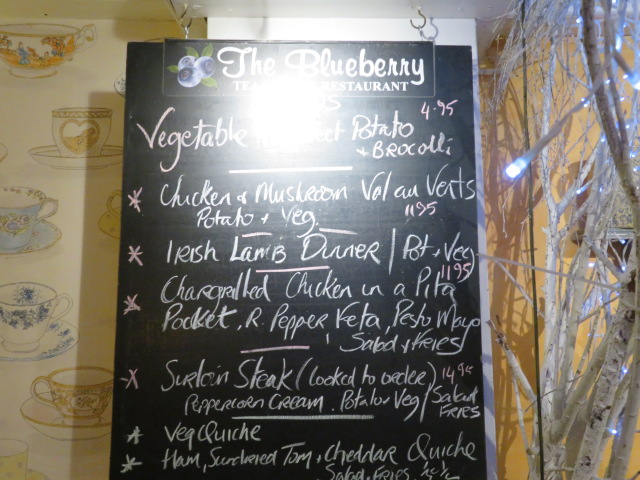 The Blueberry
TEA RESTAURANT
4.95
Vegetable Potato
+ BROCOlli
* Chicken & Mushroom Vol au Vents
Potato + Veg 11.95
* IRISH LAMB DINNER / Pot + Veg
11.95
* Chargrilled Chicken in a Pita
Pocket, R. Pepper Feta, Pesto Mayo
Salad & FRIES
* Surloin Steak (Cooked to order) 14.95
Peppercorn Cream. Potato or Veg / Salad
FRIES
* Veg Quiche
* Ham, Sundried Tom, Cheddar Quiche
Salad, FRIES